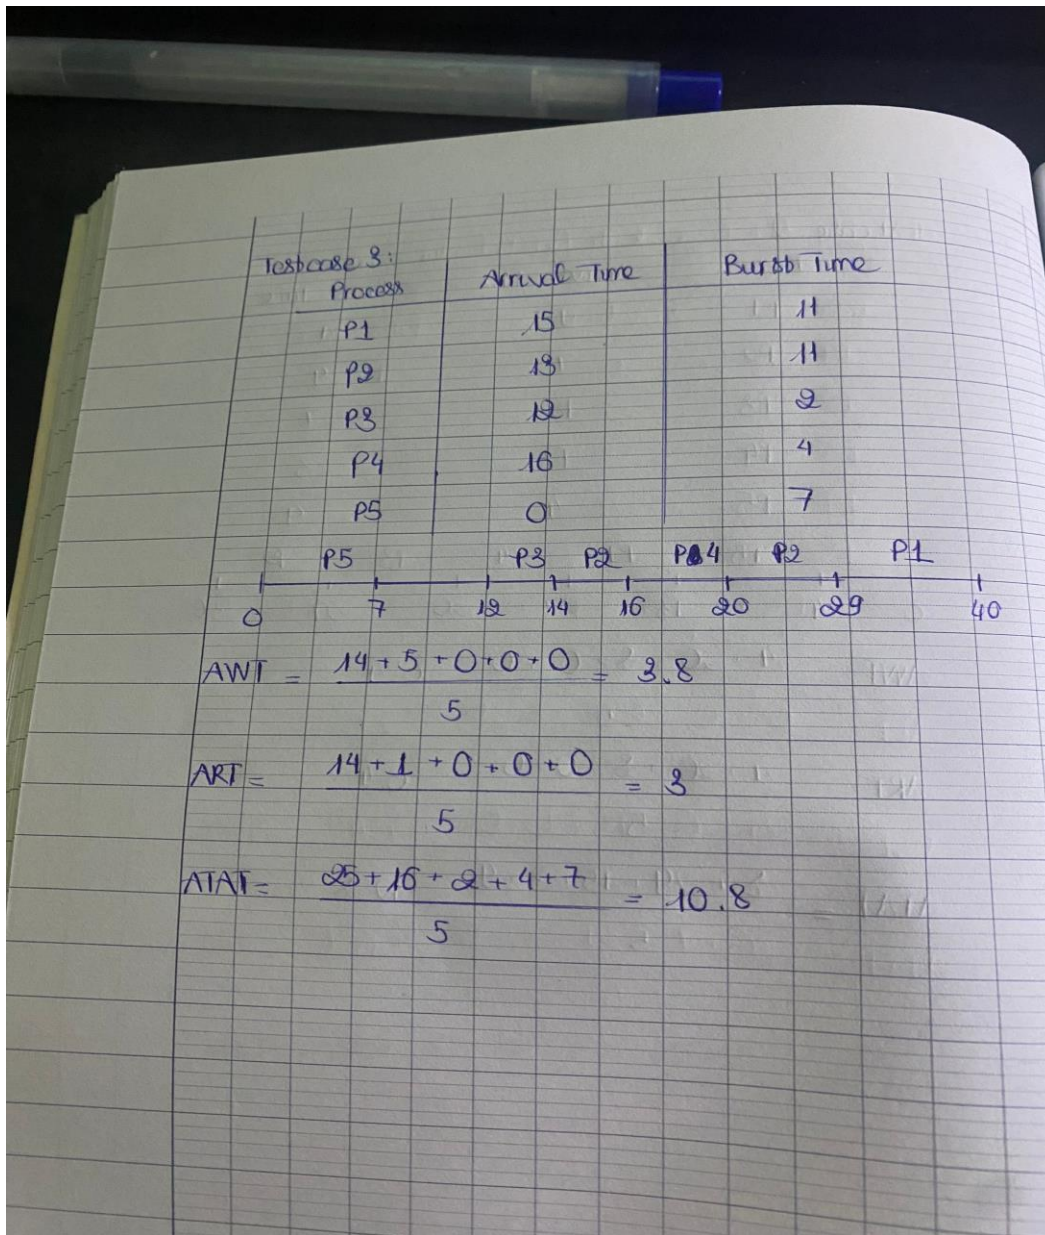 Testcase 3:
Process Arrival Time Burst Time
P1 15 11
P2 13 11
P3 12 2
P4 16 4
P5 0 7
P5 P3 P2 P4 P2 P1
0 7 12 14 16 20 29 40
AWT = 14 + 5 + 0 + 0 + 0 = 3.8
5
ART = 14 + 1 + 0 + 0 + 0 = 3
5
ATAT = 25 + 16 + 2 + 4 + 7 = 10.8
5